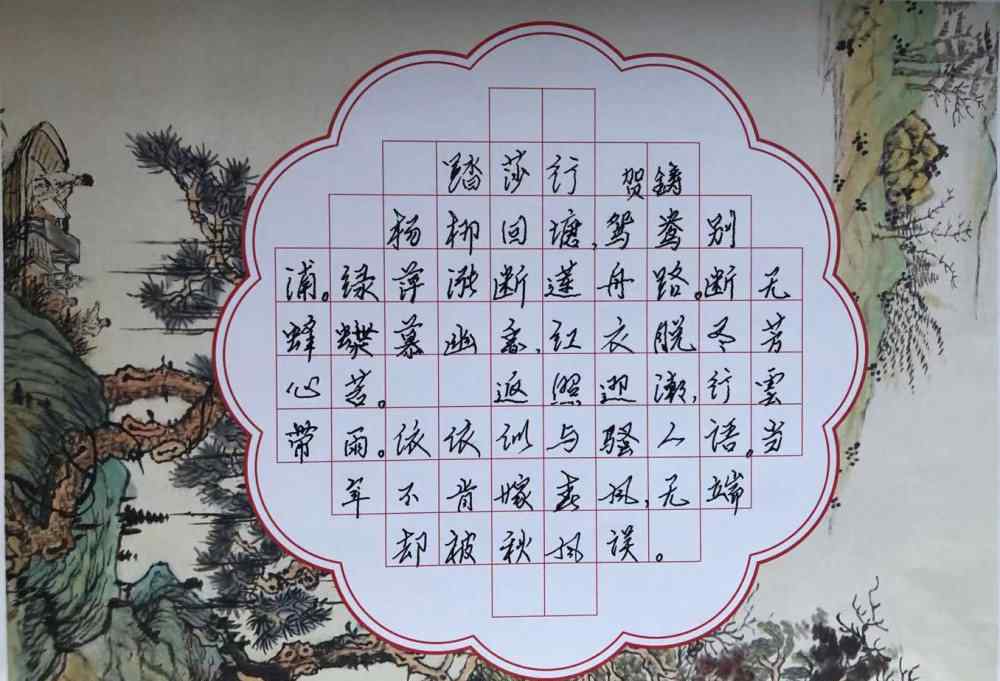 踏莎行 贺鑄
杨柳回塘,鸳鸯别
浦。绿萍涨断莲舟路。断无
蜂蝶慕幽香,红衣脱尽芳
心苦。 返照迎潮,行雲
带雨。依依似与骚人语。当
年不肯嫁春风,无端
却被秋风误。